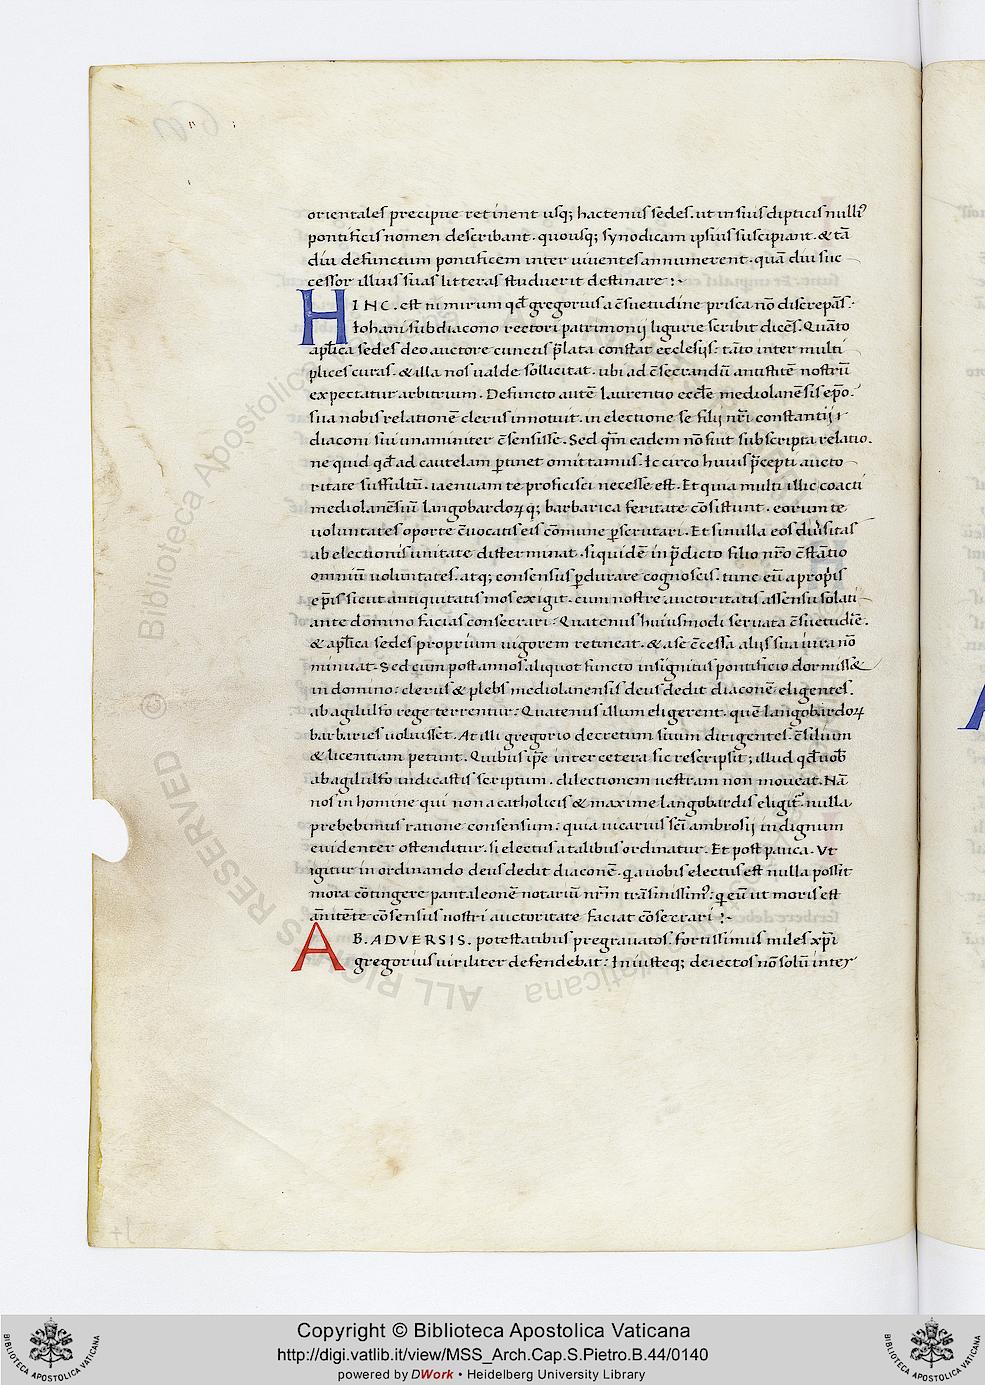 orientales precipue retinent usq; hactenus sedes. ut in suis dipticis nulli᾿
pontificis nomen describant. quousq; synodicam ipsius suscipiant. & tā
diu defunctum pontificem inter uiuentes annumerent. quā diu suc
cessor illius suas litteras studuerit destinare :·
HINC. est nimirum qđ gregorius a c̄suetudine prisca nō discrepās.
Iohani subdiacono rectori patrimonij ligurie scribit dicēs. Quāto
apl̄ica sedes deo auctore cunctis p̄lata constat ecclesijs: tāto inter multi
plices curas. & illa nos ualde sollicitat. ubi ad c̄secrandū antistitē nostrū
expectatur arbitrium. Defuncto autē laurentio eccl̄e mediolanēsis ep̄o.
sua nobis relationē clerus innotuit. in electione se filij nr̄i constantij
diaconi sui unaniniter c̄sensisse. Sed qm̄ eadem nō fuit subscripta relatio.
ne quid qđ ad cautelam ꝑtinet omittamus. Ic circo huius p̄cepti aucto
ritate suffultū. iaenuam te proficisci necesse est. Et quia multi illic coacti
mediolanēsiū langobardoꝝ q; barbarica feritate cōsistunt. eorum te
uoluntates oporte c̄uocatis eis cōmune ꝑscrutari. Et si nulla eos diu̾sitas
ab electionis unitate disterminat. siquidē in p̄dicto filio nr̄o c̄stātio
omniū uoluntates. atq; consensus ꝑdurare cognoscis. tunc eū a propiis
ep̄is sicut antiquitatis mos exigit. cum nostre auctoritatis assensu solati
ante domino facias consecrari: Quatenus huiusmodi seruata c̄suetudiē.
& apl̄ica sedes proprium uigorem retineat. & a se c̄cessa alijs sua iura nō
minuat. Sed cum post annos aliquot functo insignitus pontificio dormiss&
in domino: clerus & plebs mediolanensis deus dedit diaconē eligentes.
ab agilulfo rege terrentur: Quatenus illum eligerent. quē langobardoꝝ
barbaries uoluisset. At illi gregorio decretum suum dirigentes. c̄silium
& licentiam petunt. Quibus ip̄e inter cetera sic rescripsit; illud qđ uob̄
ab agilulfo indicastis scriptum. dilectionem uestram non moueat. Nā
nos in homine qui non a catholicis & maxime langobardis eligit᷑. nulla
prebebimus ratione consensum: quia uicarius sc̄i ambrosij indignum
euidenter ostenditur. si electus a talibus ordinatur. Et post pauca. Ut
igitur in ordinando deus dedit diaconē. q̇ a uobis electus est nulla possit
mora cōtingere pantaleonē notariū nr̄m trāsmissim᾿: q̇ eū ut moris est
ānitēte cōsensus nostri auctoritate faciat cōsecrari :·
AB. ADVERSIS. potestatibus pregrauatos. fortissimus miles xp̄i
gregorius uiriliter defendebat: Iniusteq; deiectos nō solū inter
© Biblioteca Apostolica Vaticana
ALL RIGHTS RESERVED
Copyright © Biblioteca Apostolica Vaticana
http://digi.vatlib.it/view/MSS_Arch.Cap.S.Pietro.B.44/0140
powered by DWork • Heidelberg University Library
BIBLIOTECA APOSTOLICA VATICANA
BIBLIOTECA APOSTOLICA VATICANA